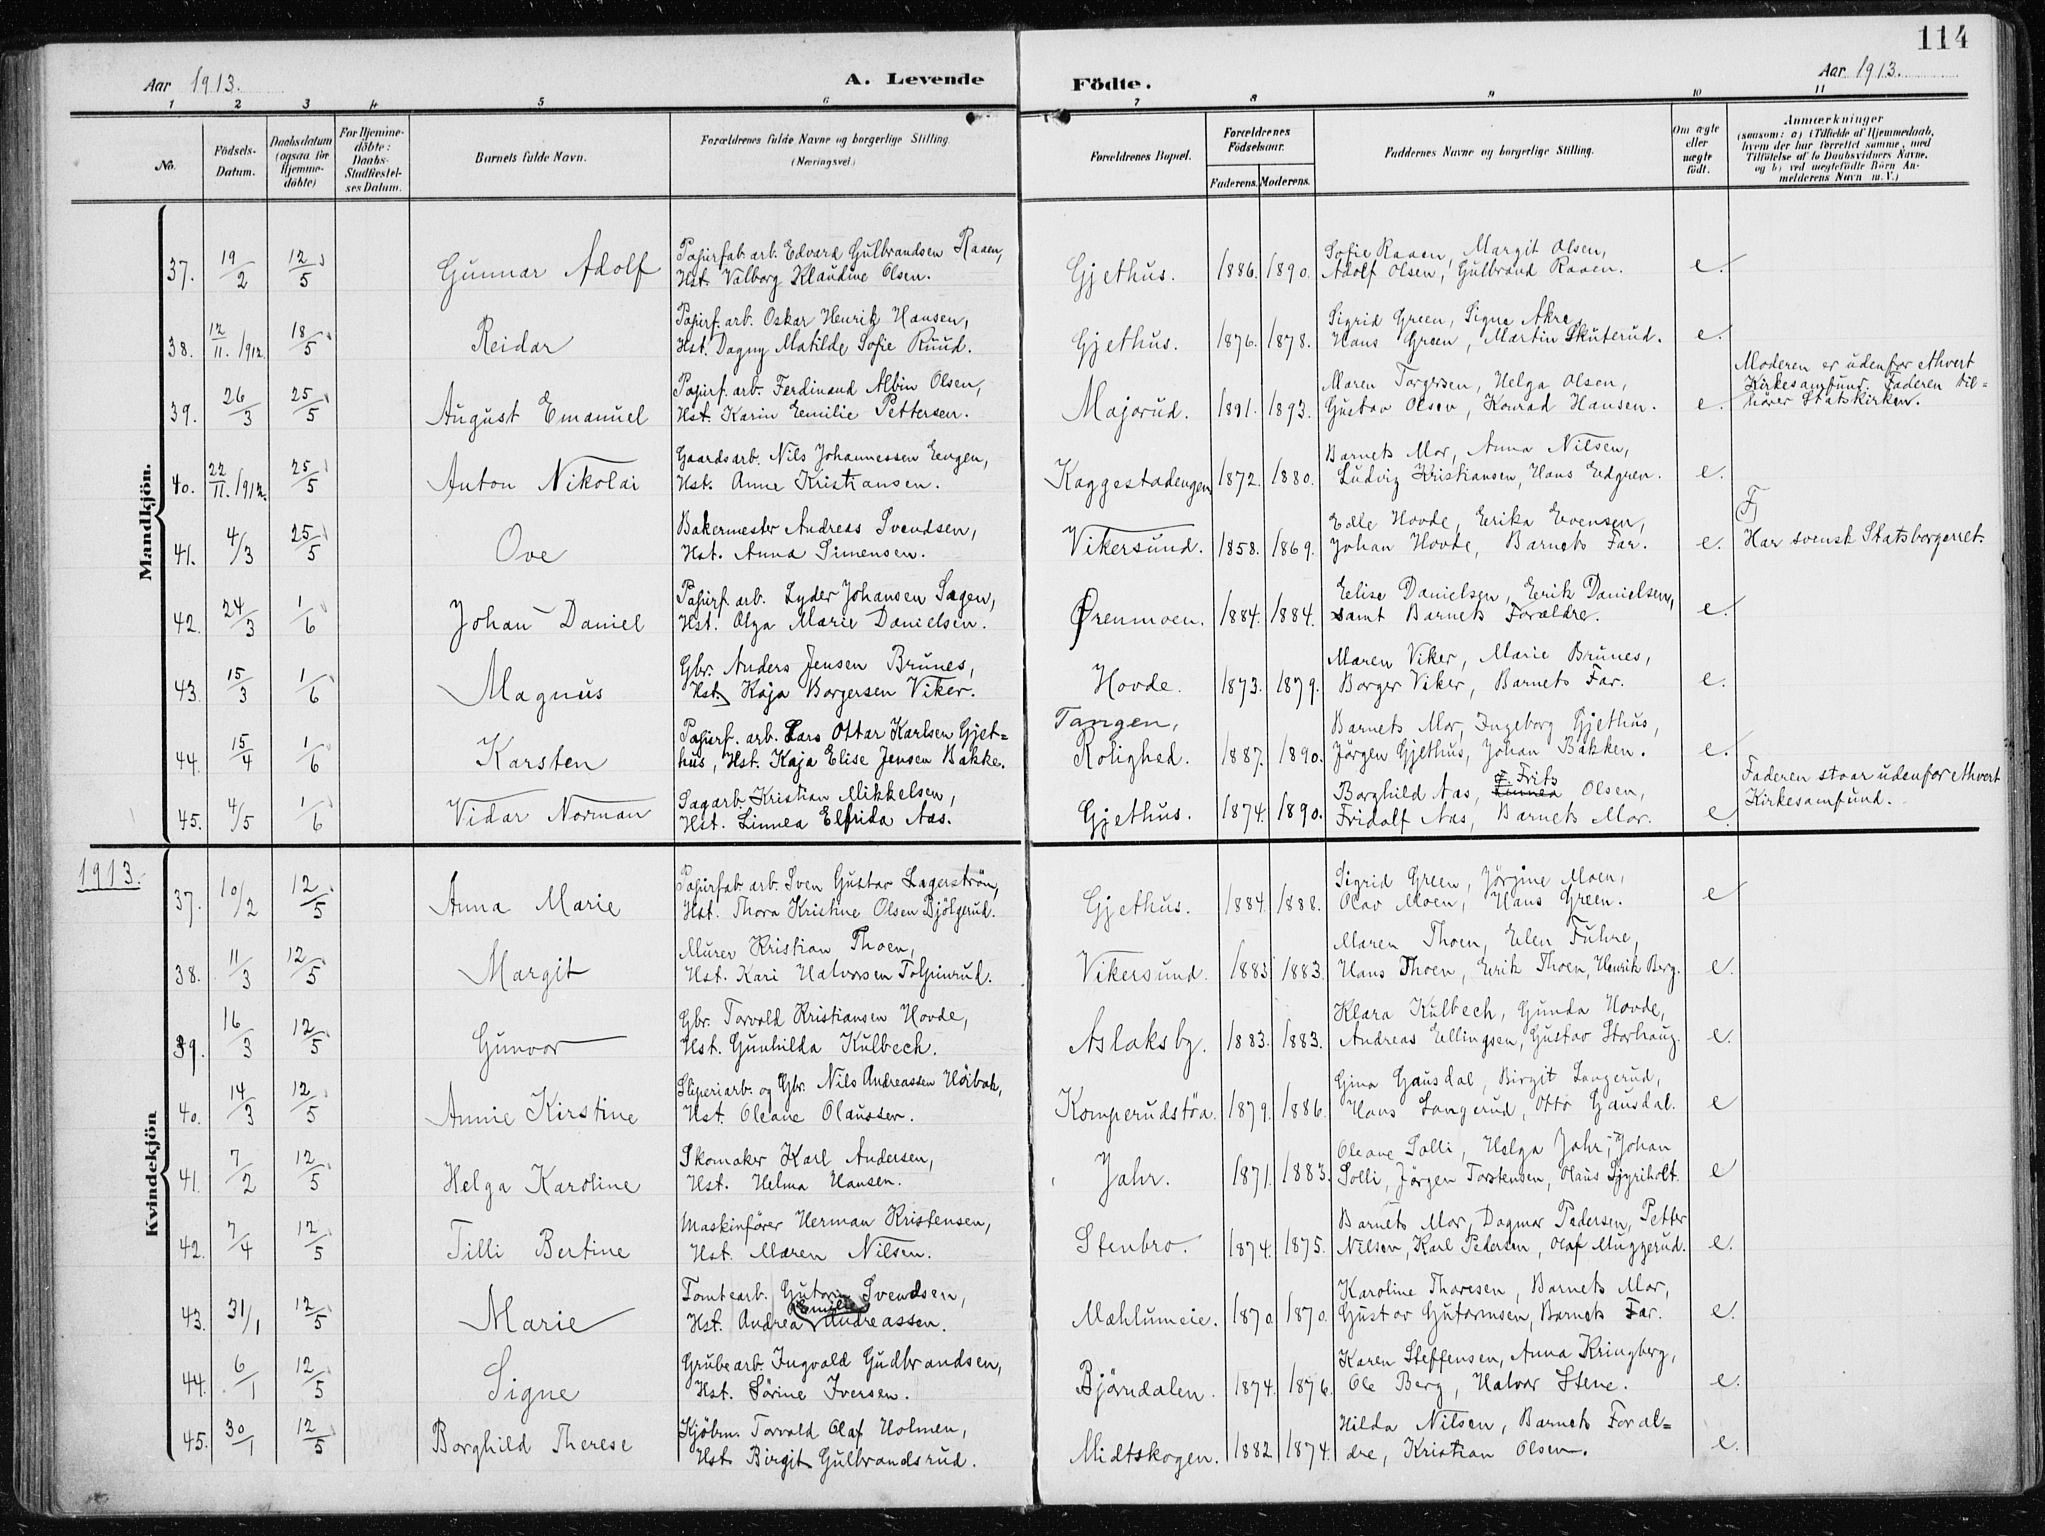 114
Aar 1913.
A. Levende Födte.
Aar 1913.
1 2 3 4 5 6 7 8 9 10 11
No.
Födsels-
Datum.
Daabsdatum
(ogsaa for
Hjemme-
döbte)
For Hjemme-
döbte:
Daabs-
Stadfæstel-
ses Datum.
Barnets fulde Navn.
Forældrenes fulde Navne og borgerlige Stilling
(Næringsvei)
Forældrenes Bopæl.
Forældrenes
Födselsaar.
Faderens. Moderens.
Faddernes Navne og borgerlige Stilling.
Om ægte
eller
uægte
födt.
Anmærkninger
(saasom: a) i Tilfælde af Hjemmedaab,
hvem der har forrettet samme, med
Tilföielse af to Daabsvidners Navne,
og b) ved uægtefödte Börn An-
melderens Navn m. V.)
Mandkjön.
37. 19/2 12/5 Gunnar Adolf
Papirfab. arb. Edvard Gulbrandsen Raaen,
Hst. Valborg Klaudine Olsen.
Gjethus. 1886. 1890.
Sofie Raaen, Margit Olsen,
Adolf Olsen, Gulbrand Raaen. e.
38. 12/11. 1912. 18/5 Reidar
Papirf. arb. Oskar Henrik Hansen,
Hst. Dagny Matilde Sofie Ruud.
Gjethus. 1876. 1878.
Sigrid Green, Signe Akre,
Hans Green, Martin Skuterud. e.
39. 26/3 25/5 August Emanuel
Papirf. arb. Ferdinand Albin Olsen,
Hst. Karin Emilie Pettersen.
Majorud. 1891. 1893.
Maren Torgersen, Helga Olsen,
Gustav Olsen, Konrad Hansen. e.
Moderen er udenfor ethvert
Kirkesamfund. Faderen til-
hører Statskirken.
40. 22/11. 1912. 25/5 Anton Nikolai
Gaardsarb. Nils Johannessen Engen,
Hst. Anne Kristiansen.
Kaggestadengen 1872. 1880.
Barnets Mor, Anna Nilsen,
Ludvig Kristiansen, Hans Edgren. e.
41. 4/3 25/5 Ove
Bakermester Andreas Svendsen,
Hst. Anna Simensen.
Vikersund. 1858. 1869.
Edle Hovde, Erika Evensen,
Johan Hovde, Barnets Far. e.
F
Har svensk Statsborgerret.
42. 24/3 1/6 Johan Daniel
Papirf. arb. Lyder Johansen Sagen,
Hst. Olga Marie Danielsen.
Ørenmoen. 1884. 1884.
Elise Danielsen, Erik Danielsen,
samt Barnets Forældre. e.
43. 15/3 1/6 Magnus
Gbr. Anders Jensen Brunes,
Hst. Kaja Borgersen Viker.
Hovde. 1873. 1879.
Maren Viker, Marie Brunes,
Borger Viker, Barnets Far. e.
44. 15/4 1/6 Karsten
Papirf. arb. Lars Ottar Karlsen Gjet-
hus, Hst. Kaja Elise Jensen Bakke.
Tangen,
Rolighed. 1887. 1890.
Barnets Mor, Ingeborg Gjethus,
Jörgen Gjethus, Johan Bakken. e.
45. 4/5 1/6 Vidar Norman
Sagarb. Kristian Mikkelsen,
Hst. Linnea Elfrida Aas.
Gjethus. 1874. 1890.
Borghild Aas, Frits Linnea Olsen,
Fridolf Aas, Barnets Mor. e.
Faderen staar udenfor ethvert
Kirkesamfund.
1913.
Kvindekjön
37. 10/2 12/5 Anna Marie
Papirfab. arb. Sven Gustav Lagerström,
Hst. Thora Kristine Olsen Bjölgerud.
Gjethus. 1884. 1888.
Sigrid Green, Jörgine Moen,
Olav Moen, Hans Green. e
38. 11/3 12/5 Margit
Murer Kristian Thoen,
Hst. Kari Halvorsen Tolpinrud.
Vikersund. 1883 1883.
Maren Thoen, Elen Fuhre,
Hans Thoen, Erik Thoen, Henrik Berg. e.
39. 16/3 12/5 Gunvor
Gbr. Torvald Kristiansen Hovde,
Hst. Gunhilda Kulbech.
Aslaksby. 1883. 1883.
Klara Kulbech, Gunda Hovde,
Andreas Ellingsen, Gustav Storhaug. e.
40. 14/3 12/5 Annie Kirstine
Sliperiarb. og Gbr. Nils Andreassen Höibak,
Hst. Oleane Olaussen.
Komperudstöa. 1879. 1886.
Gina Gausdal, Birgit Langerud,
Hans Langerud, Otto Gausdal. e
41. 7/2 12/5 Helga Karoline
Skomaker Karl Andersen,
Hst. Helma Hansen.
Jahr. 1871. 1883.
Oleane Solli, Helga Jahr, Johan
Solli, Jörgen Torstensen, Olaus Gyriholt. e
42. 7/4 12/5 Tilli Bertine
Maskinfører Herman Kristensen,
Hst. Maren Nilsen.
Stenbro. 1874. 1875.
Barnets Mor, Dagmar Pedersen, Petter
Nilsen, Karl Pedersen, Olaf Muggerud. e.
43. 31/1 12/5 Marie
Tomtearb. Gutorm Svendsen,
Hst. Andrea Kamilla Andreassen.
Mæhlumeie. 1870. 1870.
Karoline Thoresen, Barnets Mor,
Gustav Gutormsen, Barnets Far. e.
44. 6/1 12/5 Signe
Grubearb. Ingvald Gudbrandsen,
Hst. Sörine Iversen.
Björndalen. 1874. 1876.
Karen Steffensen, Anna Kringberg,
Ole Berg, Halvor Stene. e.
45. 30/1 12/5 Borghild Therese
Kjöbm. Torvald Olaf Holmen,
Hst. Birgit Gulbrandsrud.
Midtskogen. 1882 1874.
Hilda Nilsen, Barnets Foræl-
dre, Kristian Olsen. e.